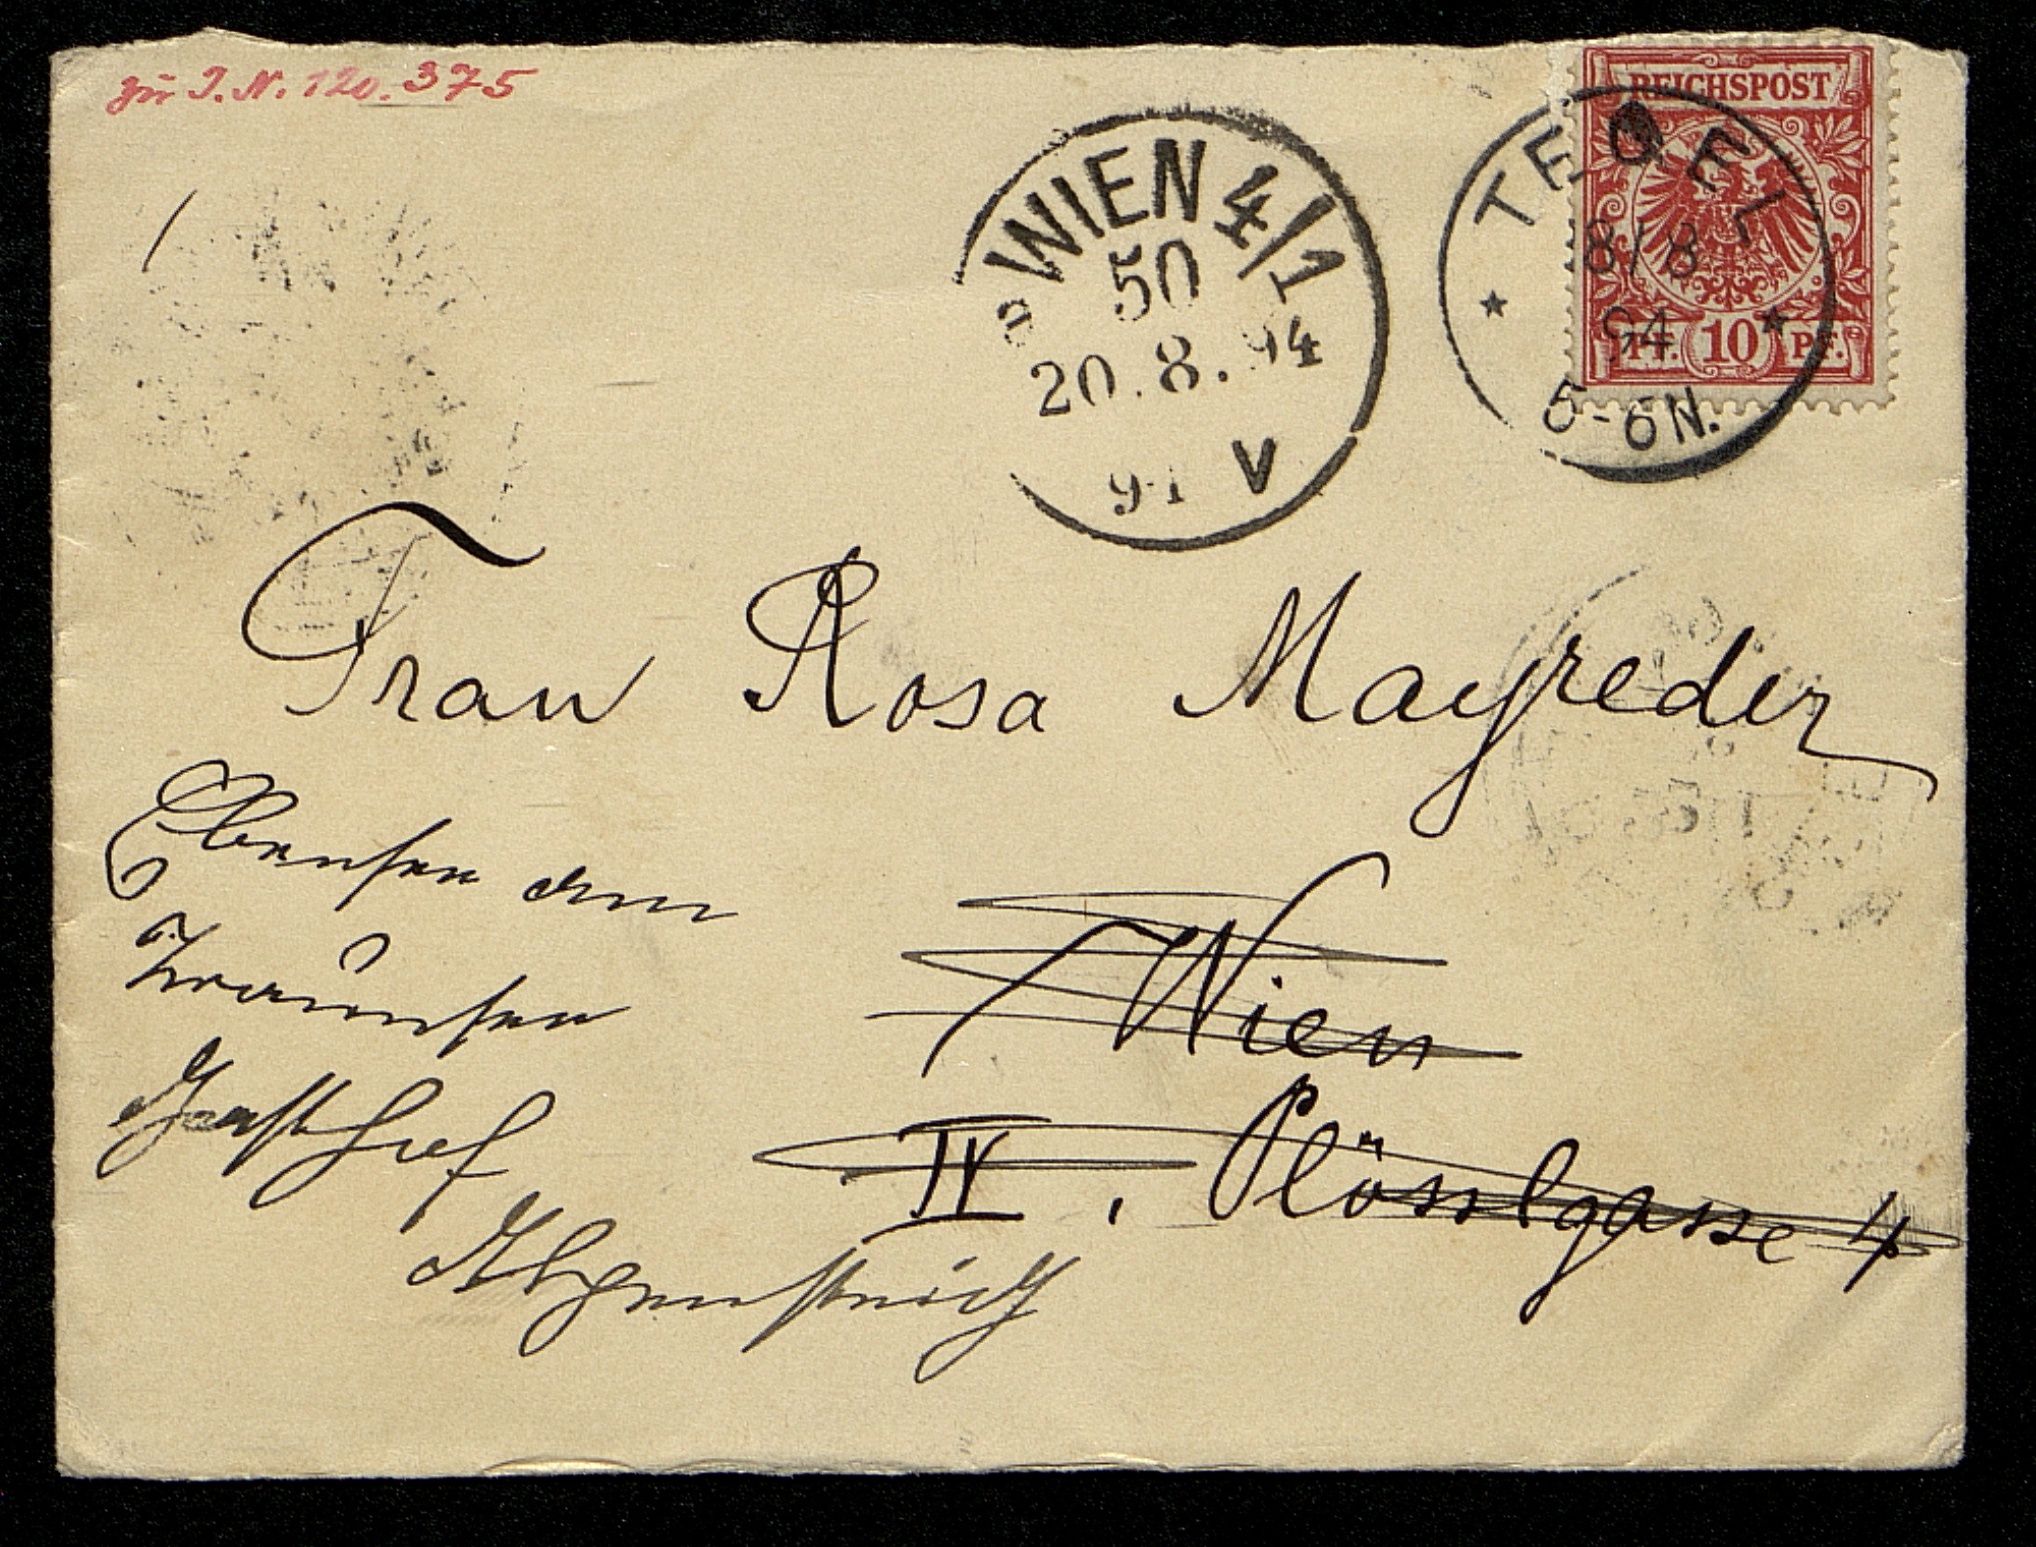 zur I. N. 120.375
REICHSPOST
PF. 10 PF.
TEGEL
18/8
94
5-6N.
WIEN 4/1
50
20.8.94
V
Frau Rosa Mayreder
Wien
IV, Plösslgasse 4
Ebensee am
Traunsee
Gasthof